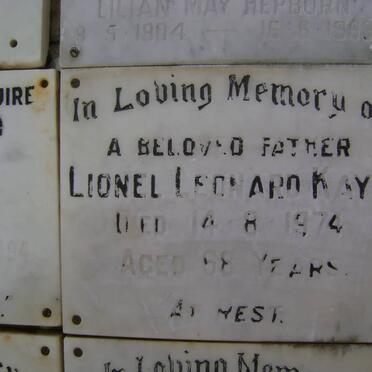 LILIAN MAY HEPBURN
In Loving Memory o
A BELOVED FATHER
LIONEL LEONARD KAY
DIED 14 - 8 - 1974
AGED 68 YEARS
AT REST.
UIRE
In Loving Mem